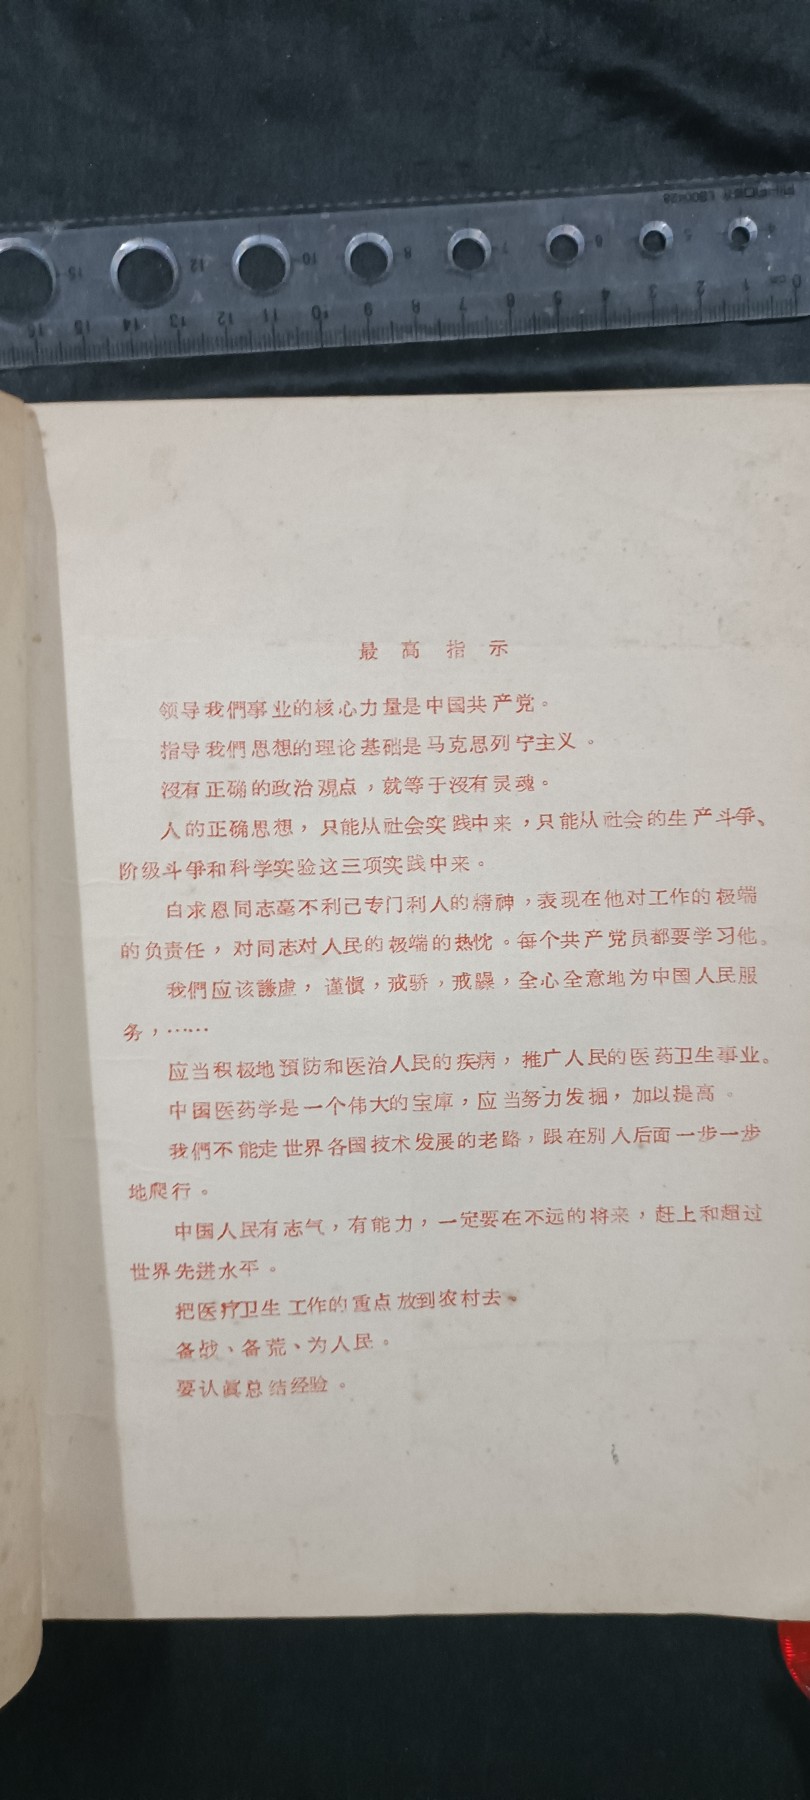 16 15 14 13 12 11 10 9 8 7 6 5 4 3 2 1 0 cm
最高指示
领导我們事业的核心力量是中国共产党。
指导我們思想的理论基础是马克思列宁主义。
沒有正确的政治观点，就等于沒有灵魂。
人的正确思想，只能从社会实践中来，只能从社会的生产斗爭、
阶级斗爭和科学实验这三项实践中来。
白求恩同志毫不利己专门利人的精神，表现在他对工作的极端
的负责任，对同志对人民的极端的热忱。每个共产党员都要学习他。
我們应该謙虚，谨愼，戒骄，戒躁，全心全意地为中国人民服
务，……
应当积极地預防和医治人民的疾病，推广人民的医药卫生事业。
中国医药学是一个伟大的宝庫，应当努力发掘，加以提高。
我們不能走世界各国技术发展的老路，跟在別人后面一步一步
地爬行。
中国人民有志气，有能力，一定要在不远的将来，赶上和超过
世界先进水平。
把医疗卫生工作的重点放到农村去。
备战、备荒、为人民。
要认眞总结经验。